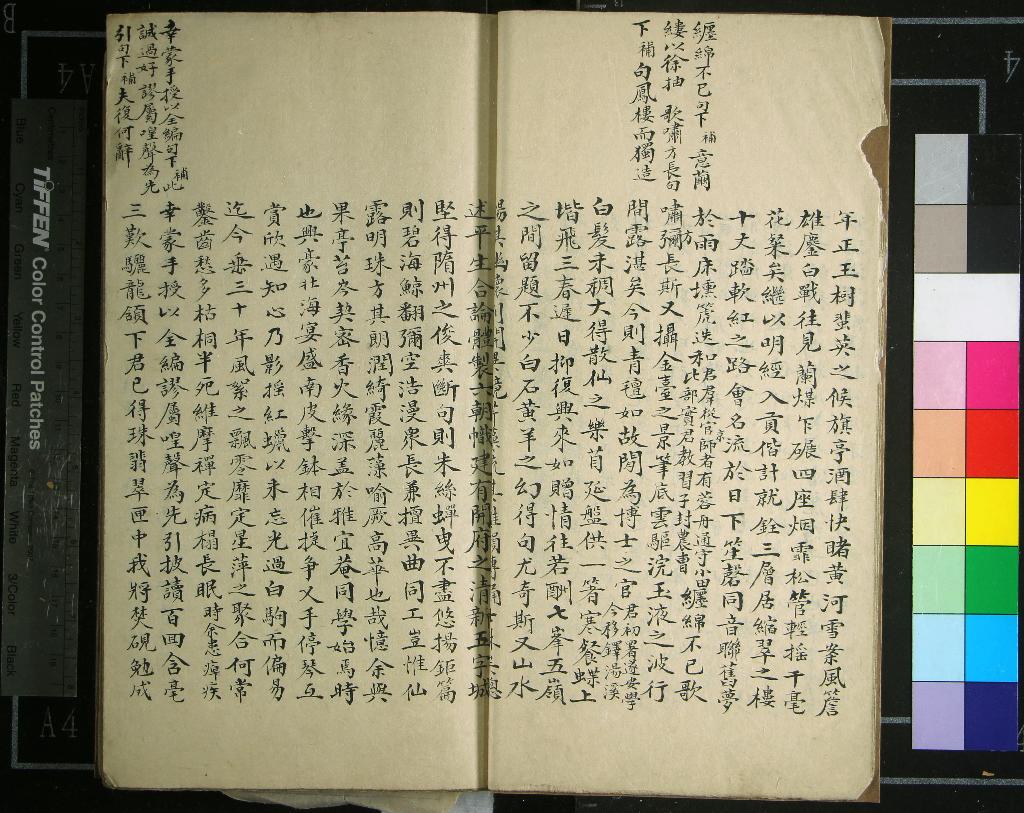 纏綿不已句下補意繭
縷以徐抽歌嘯方長句
下補句鳳樓而獨造
年正玉樹蜚英之候旗亭酒肆快睹黃河雪案風簷
雄鏖白戰往見蘭煤下碾四座烟霏松管輕搖千毫
花粲矣繼以明經入貢偕計就銓三層居縮翠之樓
十丈踏軟紅之路會名流於日下笙磬同音聯舊夢
於雨床壎箎迭和君羣從官京師者有蓉舟通守小男比部實君教習子封農曹纏綿不已歌
嘯方彌長斯又攝金臺之景筆底雲驅浣玉液之波行
間露湛矣今則青氊如故閒為博士之官君初署遂安學今移鐸湯溪
白髮未稠大得散仙之樂苜延盤供一箸寒餐蝶上
堦飛三春遲日抑復興來如贈情往若酬七峯五嶺
之間留題不少白石黃羊之幻得句尤奇斯又山水
述平生合論體製一朝幟建有開府之清新五字城
堅得隋州之俊爽斷句則朱絲蟬曳不盡悠揚鉅篇
則碧海鯨翻彌空浩漫衆長兼擅異曲同工豈惟仙
露明珠方其朗潤綺霞麗藻喻厥高華也哉憶余與
果亭苔岑契密香火緣深盖於雅宜菴同學始焉時
也興豪壯海宴盛南皮擊鉢相催捷爭乂手停琴互
賞欣遇知心乃影搖紅蠟以未忘光過白駒而偏易
迄今垂三十年風絮之飄零靡定星萍之聚合何常
鑿齒愁多枯桐半死維摩禪定病榻長眠時余患瘴疾
幸蒙手授以全編謬屬喤聲為先引披讀百囬含毫
三歎驪龍頷下君已得珠翡翠匣中我將焚硯勉成
幸蒙手授以全編句下補此
誠過好謬屬喤聲為先
引句下補夫復何辭
TIFFEN Color Control Patches
Blue
Cyan
Green
Yellow
Red
Magenta
White
3/Color
Black
A4